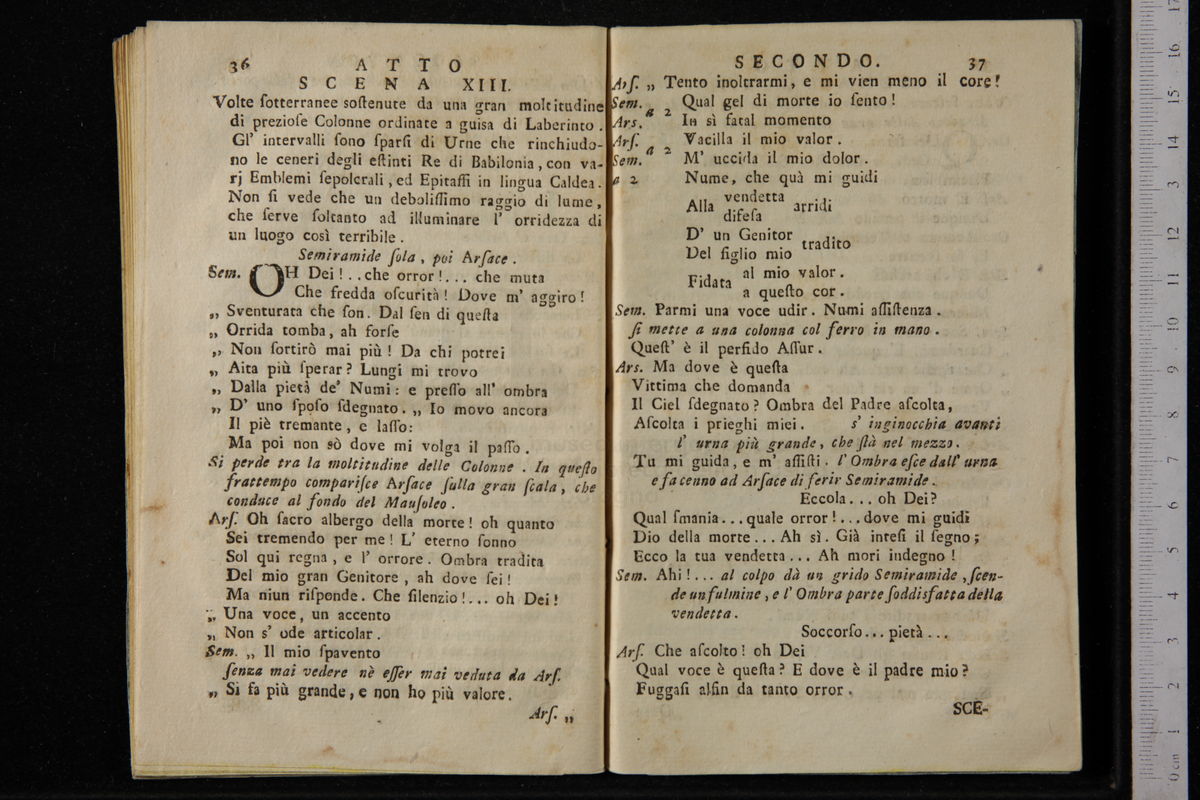 36 ATTO
SCENA XIII.
Volte ſotterranee ſoſtenute da una gran moltitudine
di prezioſe Colonne ordinate a guisa di Laberinto.
Gl' intervalli ſono ſparſi di Urne che rinchiudo-
no le ceneri degli eſtinti Re di Babilonia, con va-
rj Emblemi ſepolcrali, ed Epitaffi in lingua Caldea.
Non ſi vede che un deboliſſimo raggio di lume,
che ſerve ſoltanto ad illuminare l' orridezza di
un luogo così terribile.
Semiramide ſola, poi Arſace.
Sem. OH Dei!..che orror!... che muta
Che fredda oſcurità! Dove m' aggiro!
„ Sventurata che ſon. Dal ſen di queſta
„ Orrida tomba, ah forſe
„ Non ſortirò mai più! Da chi potrei
„ Aita più ſperar? Lungi mi trovo
„ Dalla pietà de' Numi: e preſſo all' ombra
„ D' uno ſpoſo ſdegnato. „ Io movo ancora
Il piè tremante, e laſſo:
Ma poi non sò dove mi volga il paſſo.
Si perde tra la moltitudine delle Colonne. In queſto
frattempo compariſce Arſace ſulla gran ſcala, che
conduce al fondo del Mauſoleo.
Arſ. Oh ſacro albergo della morte! oh quanto
Sei tremendo per me! L' eterno ſonno
Sol qui regna, e l' orrore. Ombra tradita
Del mio gran Genitore, ah dove ſei!
Ma niun riſponde. Che ſilenzio!... oh Dei!
„ Una voce, un accento
„ Non s' ode articolar.
Sem. „ Il mio ſpavento
ſenza mai vedere nè eſſer mai veduta da Arſ.
„ Si fa più grande, e non ho più valore.
Arſ. „
SECONDO. 37
Arſ. „ Tento inoltrarmi, e mi vien meno il core!
Sem. a 2 Qual gel di morte io ſento!
Ars. In sì fatal momento
Arſ. a 2 Vacilla il mio valor.
Sem. M' uccida il mio dolor.
a 2 Nume, che quà mi guidi
Alla vendetta arridi
difeſa
D' un Genitor tradito
Del figlio mio
Fidata al mio valor.
a queſto cor.
Sem. Parmi una voce udir. Numi aſſiſtenza.
ſi mette a una colonna col ferro in mano.
Queſt' è il perfido Aſſur.
Ars. Ma dove è queſta
Vittima che domanda
Il Ciel ſdegnato? Ombra del Padre aſcolta,
Aſcolta i prieghi miei. s' inginocchia avanti
l' urna più grande, che ſtà nel mezzo.
Tu mi guida, e m' aſſiſti. l' Ombra eſce dall' urna
e fa cenno ad Arſace di ferir Semiramide.
Eccola... oh Dei?
Qual ſmania...quale orror!...dove mi guidi
Dio della morte... Ah sì. Già inteſi il ſegno;
Ecco la tua vendetta... Ah mori indegno!
Sem. Ahi!... al colpo dà un grido Semiramide, ſcen-
de un fulmine, e l' Ombra parte ſoddisfatta della
vendetta.
Soccorſo... pietà...
Arſ. Che aſcolto! oh Dei
Qual voce è queſta? E dove è il padre mio?
Fuggaſi alfin da tanto orror.
SCE-
0 cm 1 2 3 4 5 6 7 8 9 10 11 12 13 14 15 16 17